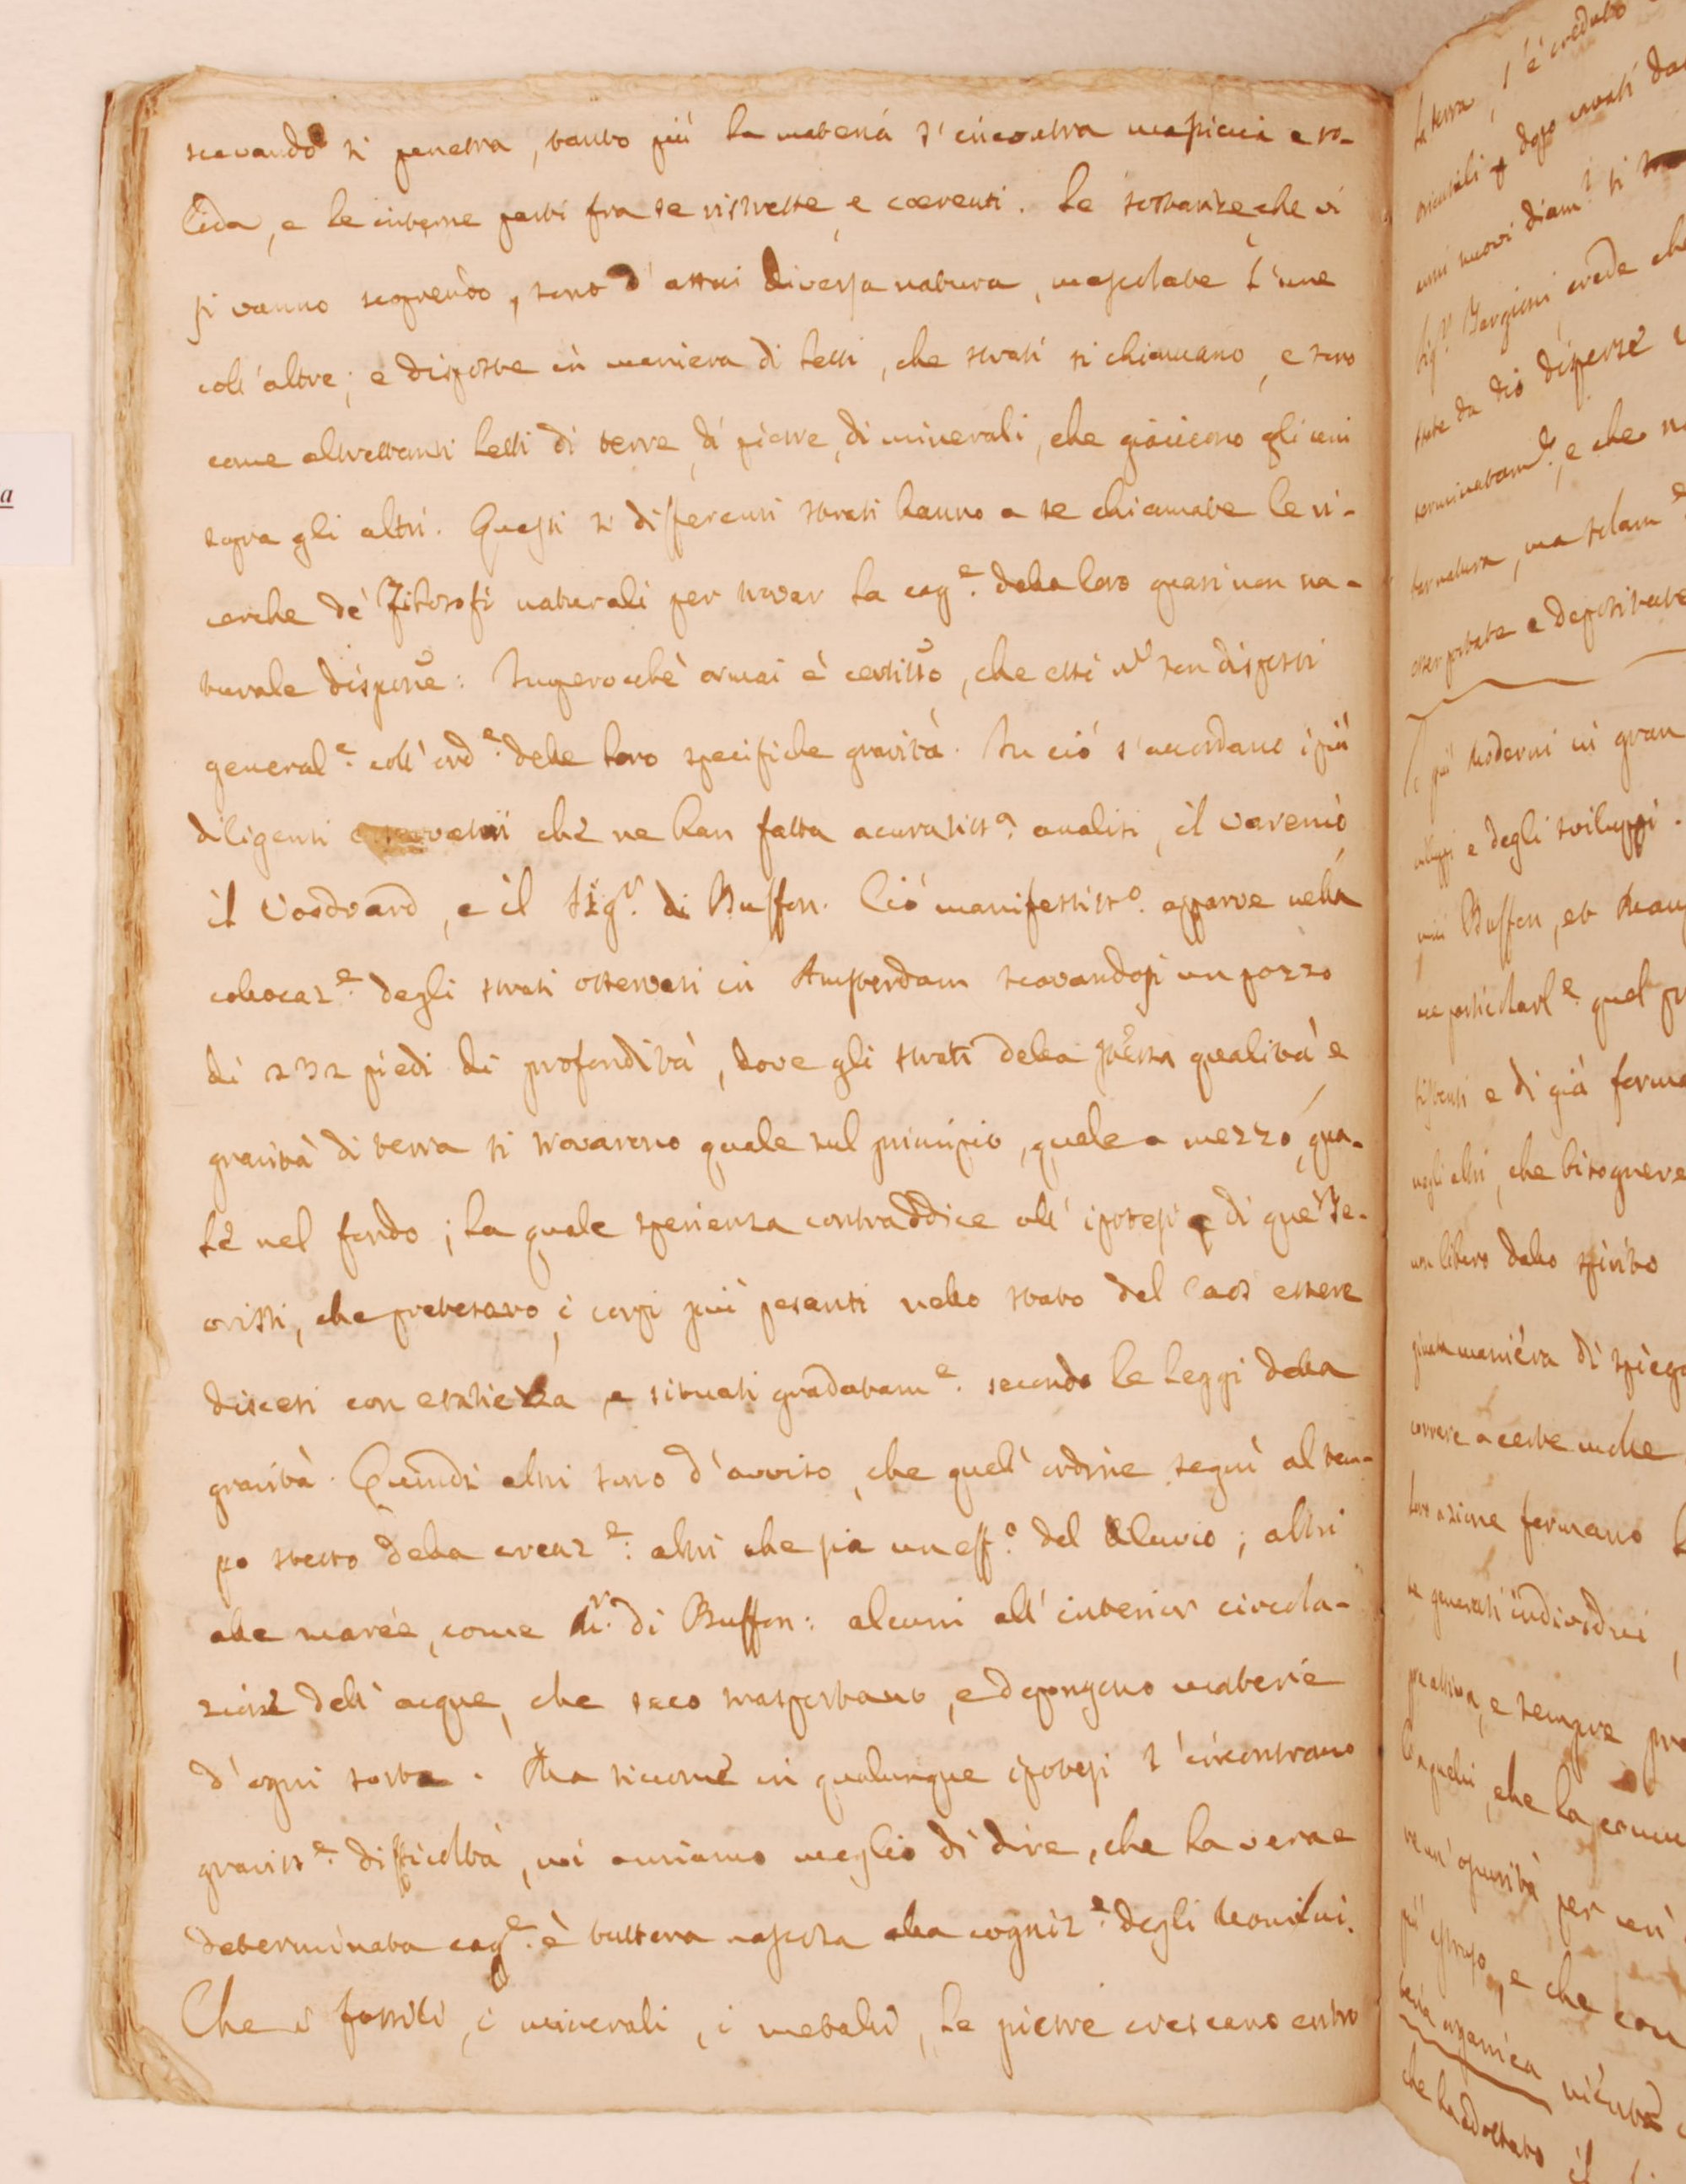 scavando si penetra, tanto più la materia s'incontra massiccia e so-
lida, e le interne parti fra se ristrette, e coerenti. Le sostanze che vi
si vanno scoprendo, sono d'assai diversa natura, mescolate l'une
coll'altre; e disposte in maniera di letti, che strati si chiamano, e sono
come altrettanti letti di terre, di pietre, di minerali, che giacciono gli uni
sopra gli altri. Questi sì differenti strati hanno a se chiamate le ri-
cerche de' Filosofi naturali per trovar la cag.e della loro quasi non na-
turale dispone: Imperocchè ormai è certisso, che essi ñ son disposti
general.e coll'ord.e delle loro specifiche gravità. In ciò s'accordano i più
diligenti che ne han fatta acuratiss.a analisi, il Varenio
il Voodvard, e il Sig.r di Buffon. Ciò manifestiss.o apparve nella
collocaz.e degli strati osservati in Amsterdam scavandosi un pozzo
di 232 piedi di profondità, dove gli strati della stessa qualità e
gravità di terra si trovarono quale sul principio, quale a mezzo, qua-
le nel fondo; la quale sperienza contraddice all'ipotesi di que' Te-
oristi, che pretesero, i corpi più pesanti nello stato del Caos essere
discesi con esattezza e situati gradatam.e secondo le leggi della
gravità. Quindi altri sono d'avviso, che quell'ordine seguì al tem-
po stesso della creaz.e: altri che sia un eff.o del diluvio; altri
alle marée, come M.r di Buffon: alcuni all'interior circola-
zione dell'acque, che seco trasportano, e depongono materie
d'ogni sorta. Ma siccome in qualunque ipotesi s'incontrano
graviss.e difficoltà, noi amiamo meglio di dire, che la vera e
determinata cag.e è tuttora nascosa alla cogniz.e degli Uomini.
Che i fossili, i minerali, i metalli, le pietre crescano entro
la terra, s'è creduto
dopo cavati
nuovi diam.i si
Sig.r Targioni crede che
state da dio disperse
e che
natura, ma solam.e
portate e depositate
I più Moderni in gran
e degli sviluppi.
Buffon, et
particolarl.e quel
e di già forma
negli altri, che bisognere
non libero dallo spirito
maniera di spiega
correre a certe
loro azione formano
generati individui
e sempre pro
quelli, che la comu
per un'
e che con
teria organica
che ha adottato il
a